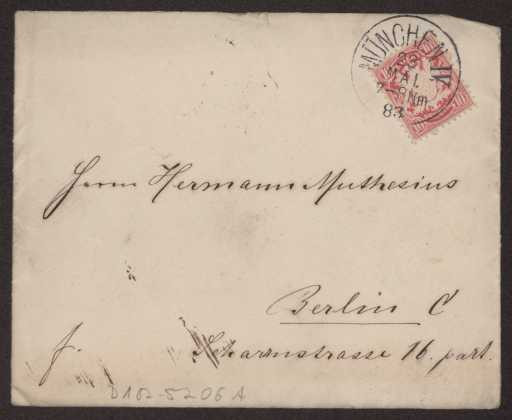 MÜNCHEN IV.
MAI.
7-8 Nm
83
Herrn Hermann Muthesius
Berlin C
f. Scharrnstrasse 16. part.
D102-5206A